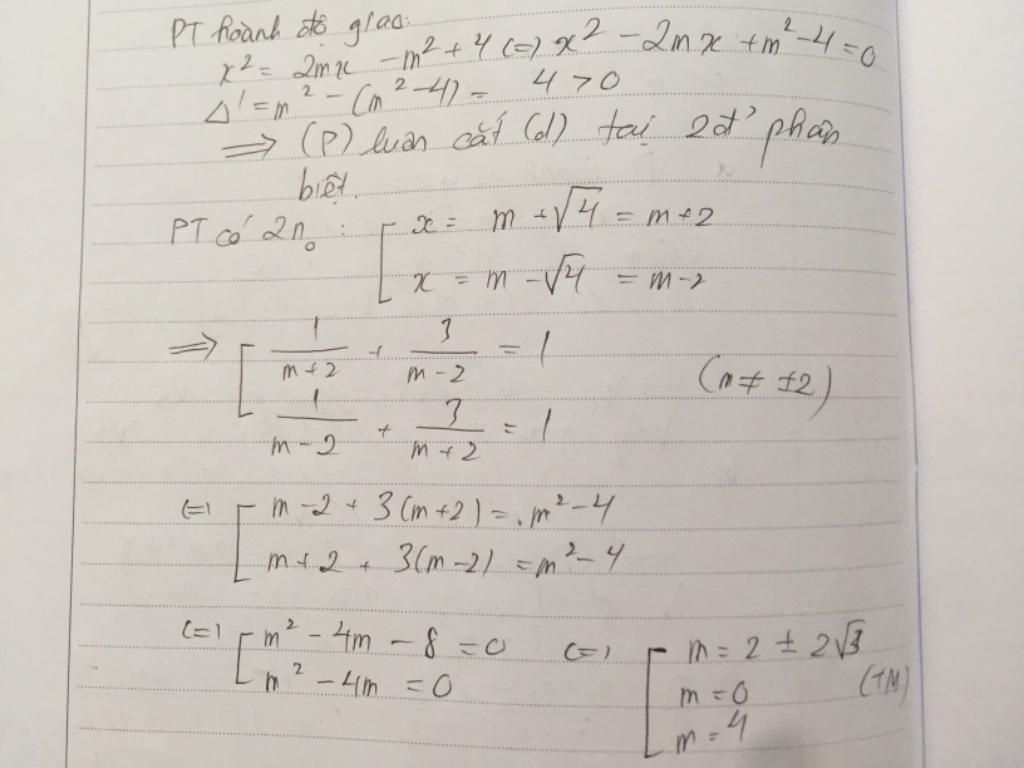 PT hoành độ giao:
x² = 2mx - m² + 4 (=) x² - 2mx + m² - 4 = 0
Δ' = m² - (m² - 4) = 4 > 0
=> (P) luôn cắt (d) tại 2đ' phân
biệt.
PT có 2no : [ x = m + √4 = m+2
x = m - √4 = m-2
=> [ 1/(m+2) + 3/(m-2) = 1
(m ≠ ±2)
1/(m-2) + 3/(m+2) = 1
(=) [ m-2 + 3(m+2) = m² - 4
m+2 + 3(m-2) = m² - 4
(=) [ m² - 4m - 8 = 0 (=) [ m = 2 ± 2√3
m² - 4m = 0 m = 0 (TM)
m = 4